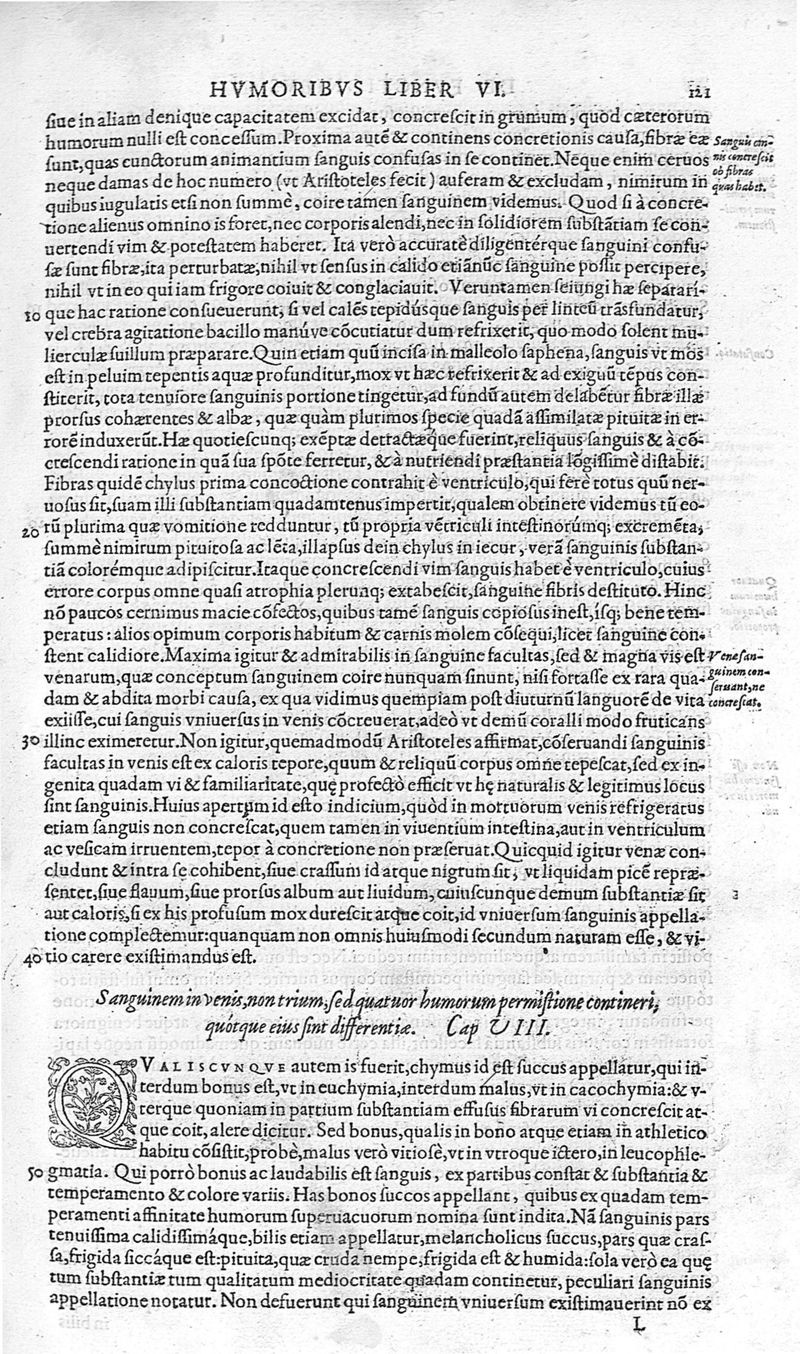 HVMORIBVS LIBER VI. 121
siue in aliam denique capacitatem excidat, concrescit in grumum, quod cæterorum
humorum nulli est concessum. Proxima autẽ & continens concretionis causa, fibræ eæ
sunt, quas cunctorum animantium sanguis confusas in se continet. Neque enim ceruos
neque damas de hoc numero (vt Aristoteles fecit) auferam & excludam, nimirum in
quibus iugulatis etsi non summè, coire tamen sanguinem videmus. Quod si à concre-
tione alienus omnino is foret, nec corporis alendi, nec in solidiorem substãtiam se con-
uertendi vim & potestatem haberet. Ita verò accuratè diligentérque sanguini confu-
sæ sunt fibræ, ita perturbatæ, nihil vt sensus in calido etiãnũc sanguine possit percipere,
nihil vt in eo qui iam frigore coiuit & conglaciauit. Veruntamen seiungi hæ separari-
10 que hac ratione consueuerunt; si vel calẽs tepidúsque sanguis per linteũ trãsfundatur,
vel crebra agitatione bacillo manúve cõcutiatur dum refrixerit, quo modo solent mu-
lierculæ suillum præparare. Quin etiam quũ incisa in malleolo saphena, sanguis vt mos
est in peluim tepentis aquæ profunditur, mox vt hæc refrixerit & ad exiguũ tẽpus con-
stiterit, tota tenuiore sanguinis portione tingetur, ad fundũ autem delabẽtur fibræ illæ
prorsus cohærentes & albæ, quæ quàm plurimos specie quadã assimilatæ pituitæ in er-
rorẽ induxerũt. Hæ quotiescunq; exẽptæ detractæque fuerint, reliquus sanguis & à cõ-
crescendi ratione in quã sua spõte ferretur, & à nutriendi præstantia lõgissimè distabit.
Fibras quidẽ chylus prima concoctione contrahit è ventriculo, qui ferè totus quũ ner-
uosus sit, suam illi substantiam quadamtenus impertit, qualem obtinere videmus tũ eo-
20 rũ plurima quæ vomitione redduntur, tũ propria vẽtriculi intestinorúmq; excremẽta,
summè nimirum pituitosa ac lẽta, illapsus dein chylus in iecur, verã sanguinis substan-
tiã colorémque adipiscitur. Itaque concrescendi vim sanguis habet è ventriculo, cuius
errore corpus omne quasi atrophia plerunq; extabescit, sanguine fibris destituto. Hinc
nõ paucos cernimus macie cõfectos, quibus tamẽ sanguis copiosus inest, ísq; bene tem-
peratus: alios opimum corporis habitum & carnis molem cõsequi, licet sanguine con-
stent calidiore. Maxima igitur & admirabilis in sanguine facultas, sed & magna vis est
venarum, quæ conceptum sanguinem coire nunquam sinunt, nisi fortasse ex rara qua-
dam & abdita morbi causa, ex qua vidimus quempiam post diuturnũ languorẽ de vita
exiisse, cui sanguis vniuersus in venis cõcreuerat, adeò vt demũ coralli modo fruticans
30 illinc eximeretur. Non igitur, quemadmodũ Aristoteles affirmat, cõseruandi sanguinis
facultas in venis est ex caloris tepore, quum & reliquũ corpus omne tepescat, sed ex in-
genita quadam vi & familiaritate, quę profectò efficit vt hę naturalis & legitimus locus
sint sanguinis. Huius apertum id esto indicium, quòd in mortuorum venis refrigeratus
etiam sanguis non concrescat, quem tamen in viuentium intestina, aut in ventriculum
ac vesicam irruentem, tepor à concretione non præseruat. Quicquid igitur venæ con-
cludunt & intra se cohibent, siue crassum id atque nigrum sit, vt liquidam picẽ repræ-
sentet, siue flauum, siue prorsus album aut liuidum, cuiuscunque demum substantiæ sit
aut caloris, si ex his profusum mox durescit atque coit, id vniuersum sanguinis appella-
tione complectemur: quanquam non omnis huiusmodi secundum naturam esse, & vi-
40 tio carere existimandus est.
Sanguis con-
nis concrescit
ob fibras
quas habet.
Venæ san-
guinem con-
seruant, ne
concrescat.
Sanguinem in venis, non trium, sed quatuor humorum permistione contineri,
quótque eius sint differentiæ. Cap VIII.
QVALISCVNQVE autem is fuerit, chymus id est succus appellatur, qui in-
terdum bonus est, vt in euchymia, interdum malus, vt in cacochymia: & v-
terque quoniam in partium substantiam effusus fibrarum vi concrescit at-
que coit, alere dicitur. Sed bonus, qualis in bono atque etiam in athletico
habitu cõsistit, probè, malus verò vitiosè, vt in vtroque ictero, in leucophle-
50 gmatia. Qui porrò bonus ac laudabilis est sanguis, ex partibus constat & substantia &
temperamento & colore variis. Has bonos succos appellant, quibus ex quadam tem-
peramenti affinitate humorum superuacuorum nomina sunt indita. Nã sanguinis pars
tenuissima calidissimáque, bilis etiam appellatur, melancholicus succus, pars quæ cras-
sa, frigida siccáque est: pituita, quæ cruda nempe, frigida est & humida: sola verò ea quę
tum substantiæ tum qualitatum mediocritate quadam continetur, peculiari sanguinis
appellatione notatur. Non defuerunt qui sanguinem vniuersum existimauerint nõ ex
L